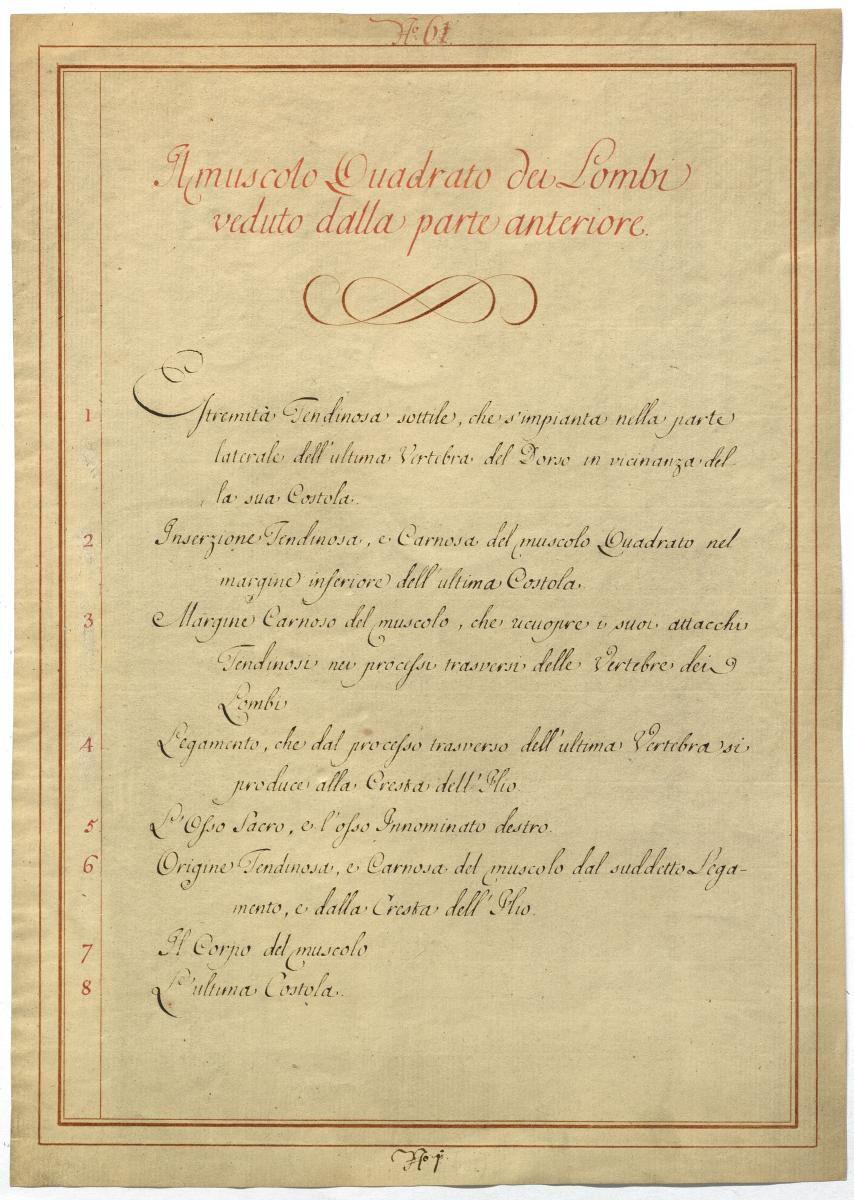 No. 61.
Il muscolo Quadrato dei Lombi
veduto dalla parte anteriore.
1 Estremità Tendinosa sottile, che s'impianta nella parte
laterale dell'ultima Vertebra del Dorso in vicinanza del-
la sua Costola.
2 Inserzione Tendinosa, e Carnosa del muscolo Quadrato nel
margine inferiore dell'ultima Costola.
3 Margine Carnoso del muscolo, che ricuopre i suoi attacchi
Tendinosi nei processi trasversi delle Vertebre dei
Lombi
4 Legamento, che dal processo trasverso dell'ultima Vertebra si
produce alla Cresta dell'Ilio.
5 L'Osso Sacro, e l'osso Innominato destro.
6 Origine Tendinosa, e Carnosa del muscolo dal suddetto Lega-
mento, e dalla Cresta dell'Ilio.
7 Il Corpo del muscolo
8 L'ultima Costola.
No.